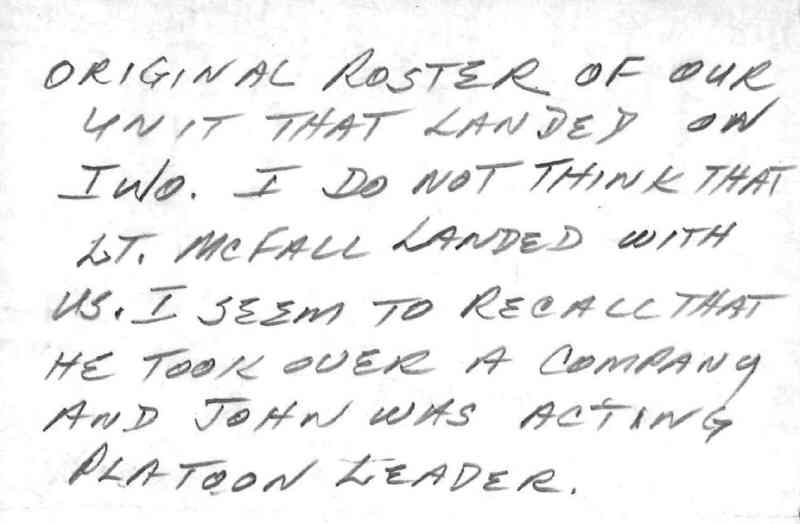 ORIGINAL ROSTER OF OUR
UNIT THAT LANDED ON
IWO. I DO NOT THINK THAT
LT. McFALL LANDED WITH
US. I SEEM TO RECALL THAT
HE TOOK OVER A COMPANY
AND JOHN WAS ACTING
PLATOON LEADER.